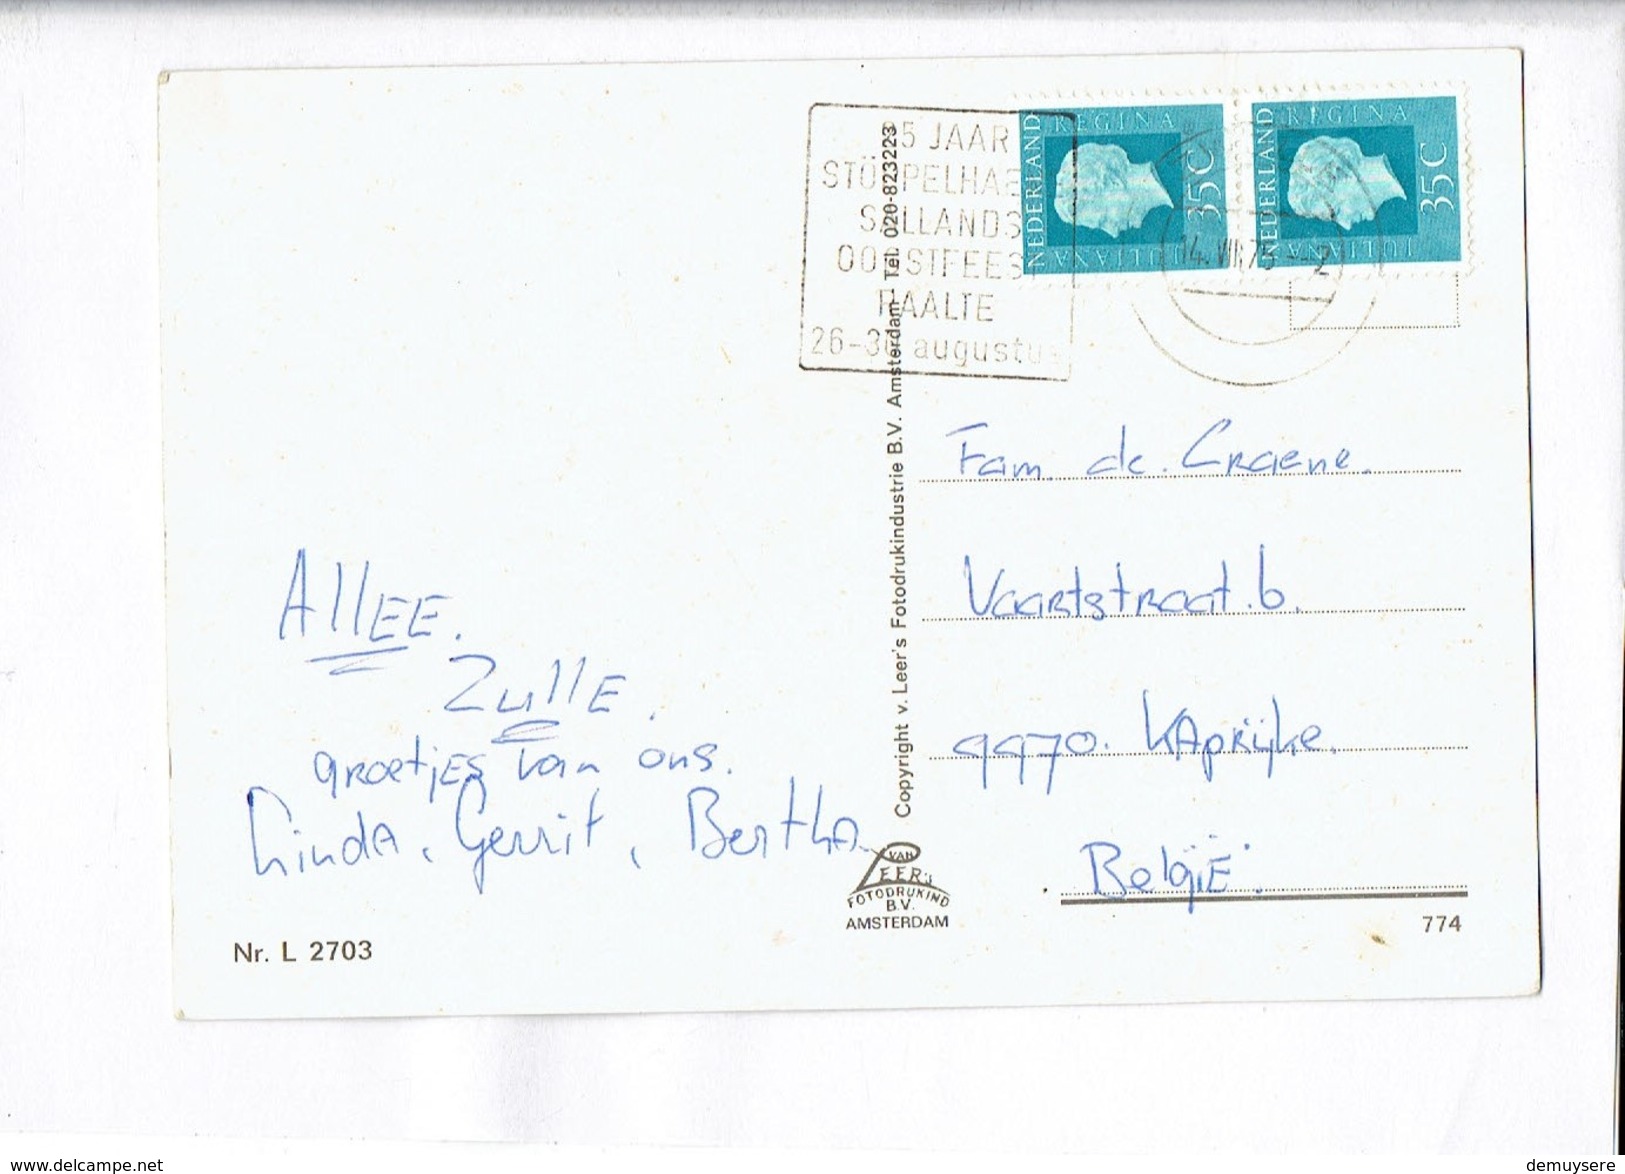 25 JAAR
STÖPPELHAE
SALLANDS
OOGSTFEES
RAALTE
26-30 augustus
NEDERLAND
REGINA
JULIANA
35C
NEDERLAND
REGINA
JULIANA
35C
14.VII.75 - 2
Copyright v. Leer's Fotodrukindustrie B.V. Amsterdam - Tel. 020-823223
Fam. de. Craene.
Vaartstraat. 6.
9970. KApRijke.
België.
AllEE.
ZullE.
groetjes van ons.
LindA, Gerrit, BerthA
VAN
LEER'S
FOTODRUKIND
B.V.
AMSTERDAM
Nr. L 2703
774
www.delcampe.net
demuysere